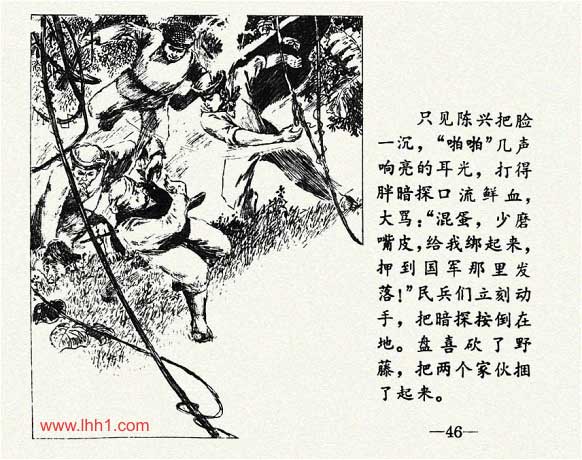 只见陈兴把脸
一沉，“啪啪”几声
响亮的耳光，打得
胖暗探口流鲜血，
大骂：“混蛋，少磨
嘴皮，给我绑起来，
押到国军那里发
落！”民兵们立刻动
手，把暗探按倒在
地。盘喜砍了野
藤，把两个家伙捆
了起来。
www.lhh1.com
—46—